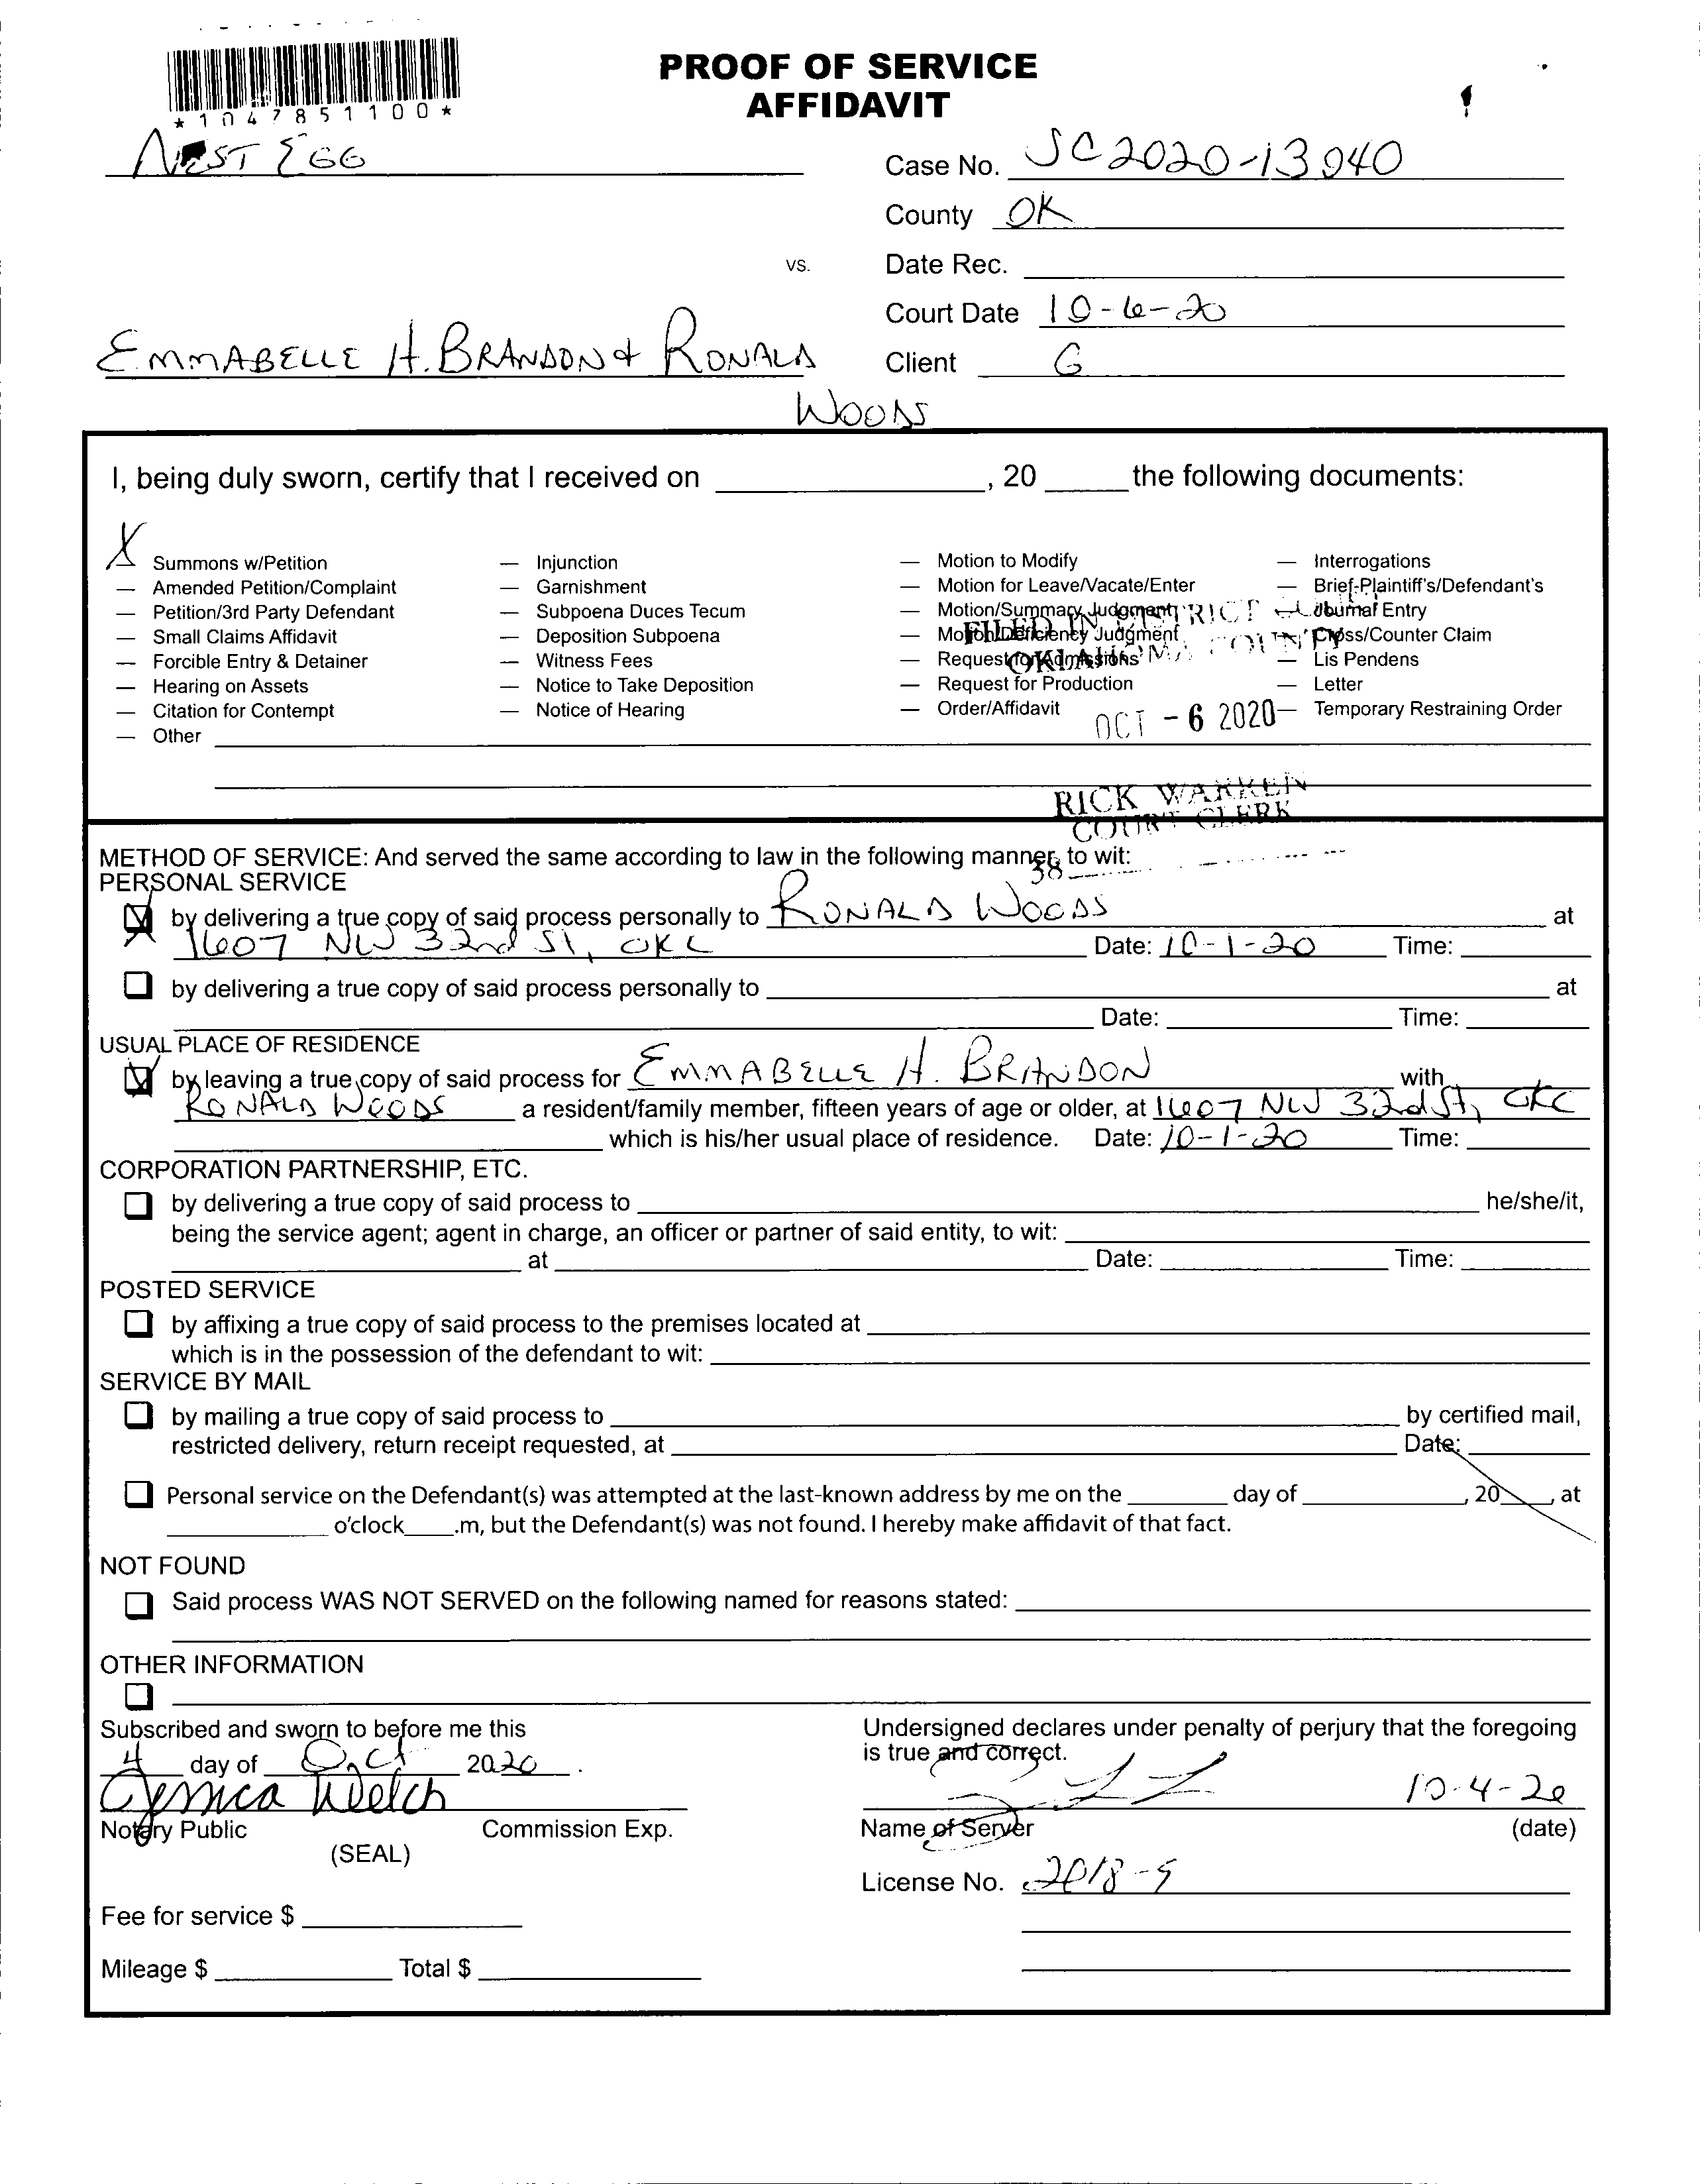 PROOF OF SERVICE
AFFIDAVIT
*1047851100*
NEST EGG
Case No. SC2020-13040
County OK
vs.
Date Rec.
Court Date 10-6-20
EMMABELLE H. BRANDON & RONALD
WOODS
Client G
I, being duly sworn, certify that I received on ____, 20 ____ the following documents:
X Summons w/Petition
— Amended Petition/Complaint
— Petition/3rd Party Defendant
— Small Claims Affidavit
— Forcible Entry & Detainer
— Hearing on Assets
— Citation for Contempt
— Other
— Injunction
— Garnishment
— Subpoena Duces Tecum
— Deposition Subpoena
— Witness Fees
— Notice to Take Deposition
— Notice of Hearing
— Motion to Modify
— Motion for Leave/Vacate/Enter
— Motion/Summary Judgment
— Motion/Deficiency Judgment
— Request for Admissions
— Request for Production
— Order/Affidavit
— Interrogations
— Brief-Plaintiff's/Defendant's
— Journal Entry
— Cross/Counter Claim
— Lis Pendens
— Letter
— Temporary Restraining Order
FILED IN DISTRICT COURT
OKLAHOMA COUNTY
OCT - 6 2020
RICK WARREN
COURT CLERK
38
METHOD OF SERVICE: And served the same according to law in the following manner, to wit:
PERSONAL SERVICE
by delivering a true copy of said process personally to RONALD WOODS at
1607 NW 32nd St, OKC Date: 10-1-20 Time:
by delivering a true copy of said process personally to ____ at
Date: ____ Time:
USUAL PLACE OF RESIDENCE
by leaving a true copy of said process for EMMABELLE H. BRANDON with
RONALD WOODS a resident/family member, fifteen years of age or older, at 1607 NW 32nd St, OKC
which is his/her usual place of residence. Date: 10-1-20 Time:
CORPORATION PARTNERSHIP, ETC.
by delivering a true copy of said process to ____ he/she/it,
being the service agent; agent in charge, an officer or partner of said entity, to wit:
at ____ Date: ____ Time:
POSTED SERVICE
by affixing a true copy of said process to the premises located at
which is in the possession of the defendant to wit:
SERVICE BY MAIL
by mailing a true copy of said process to ____ by certified mail,
restricted delivery, return receipt requested, at ____ Date:
Personal service on the Defendant(s) was attempted at the last-known address by me on the ____ day of ____, 20____, at
____ o'clock____.m, but the Defendant(s) was not found. I hereby make affidavit of that fact.
NOT FOUND
Said process WAS NOT SERVED on the following named for reasons stated:
OTHER INFORMATION
Subscribed and sworn to before me this
4 day of Oct 2020.
Jessica Welch
Notary Public Commission Exp.
(SEAL)
Fee for service $
Mileage $ ____ Total $
Undersigned declares under penalty of perjury that the foregoing
is true and correct.
10-4-20
Name of Server (date)
License No. 2018-9